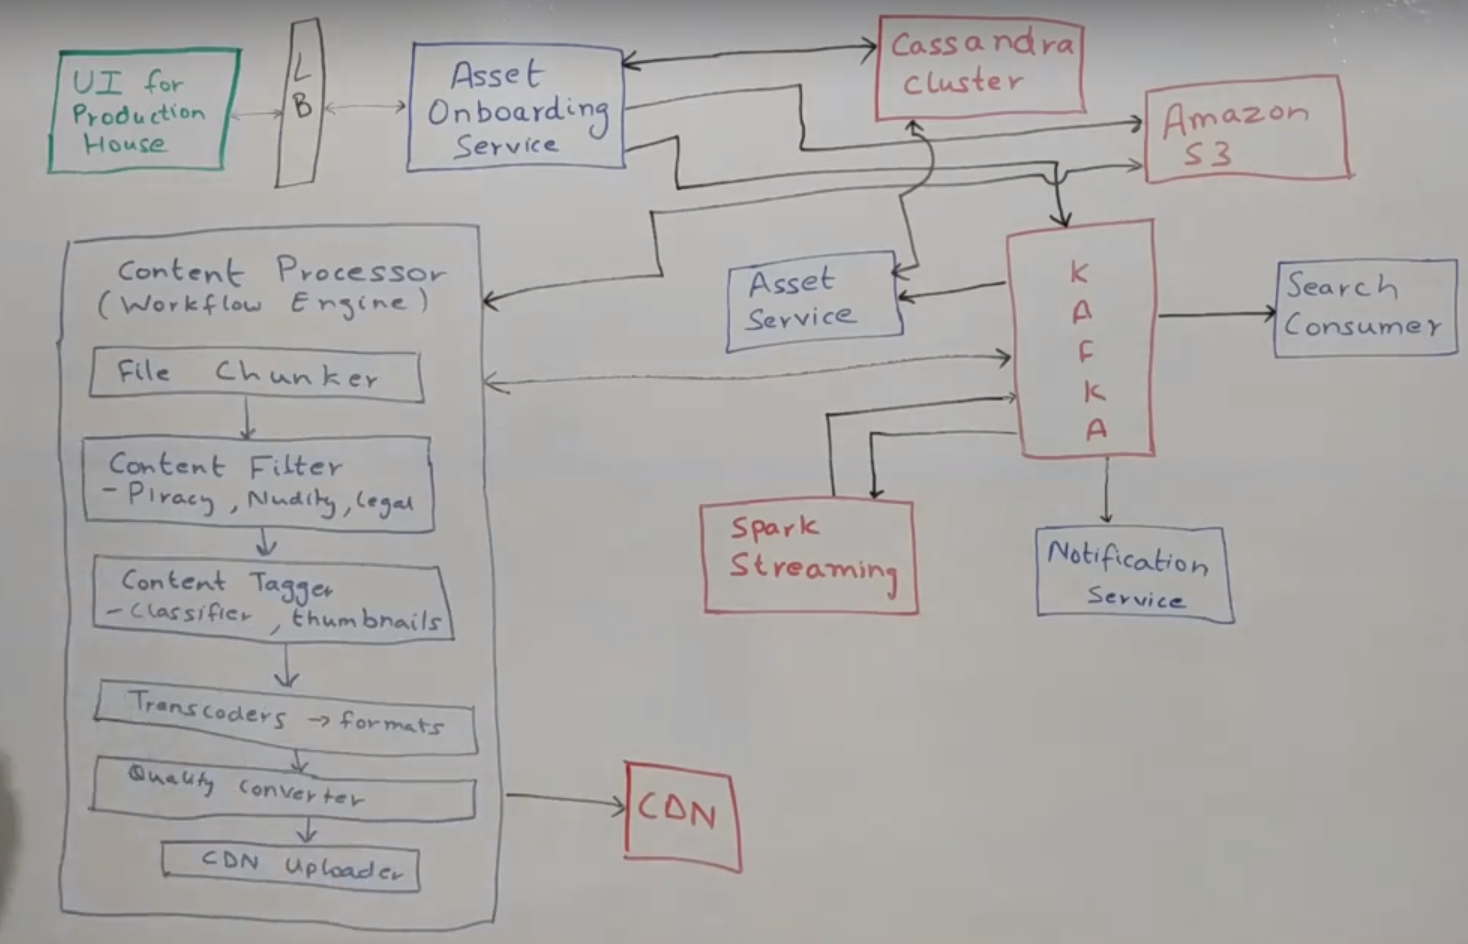 UI for
Production
House
L
B
Asset
Onboarding
Service
Cassandra
Cluster
Amazon
S3
Content Processor
(Workflow Engine)
File Chunker
Content Filter
- Piracy, Nudity, legal
Content Tagger
- Classifier, thumbnails
Transcoders → formats
Quality Converter
CDN Uploader
Asset
Service
K
A
F
K
A
Search
Consumer
Spark
Streaming
Notification
Service
CDN